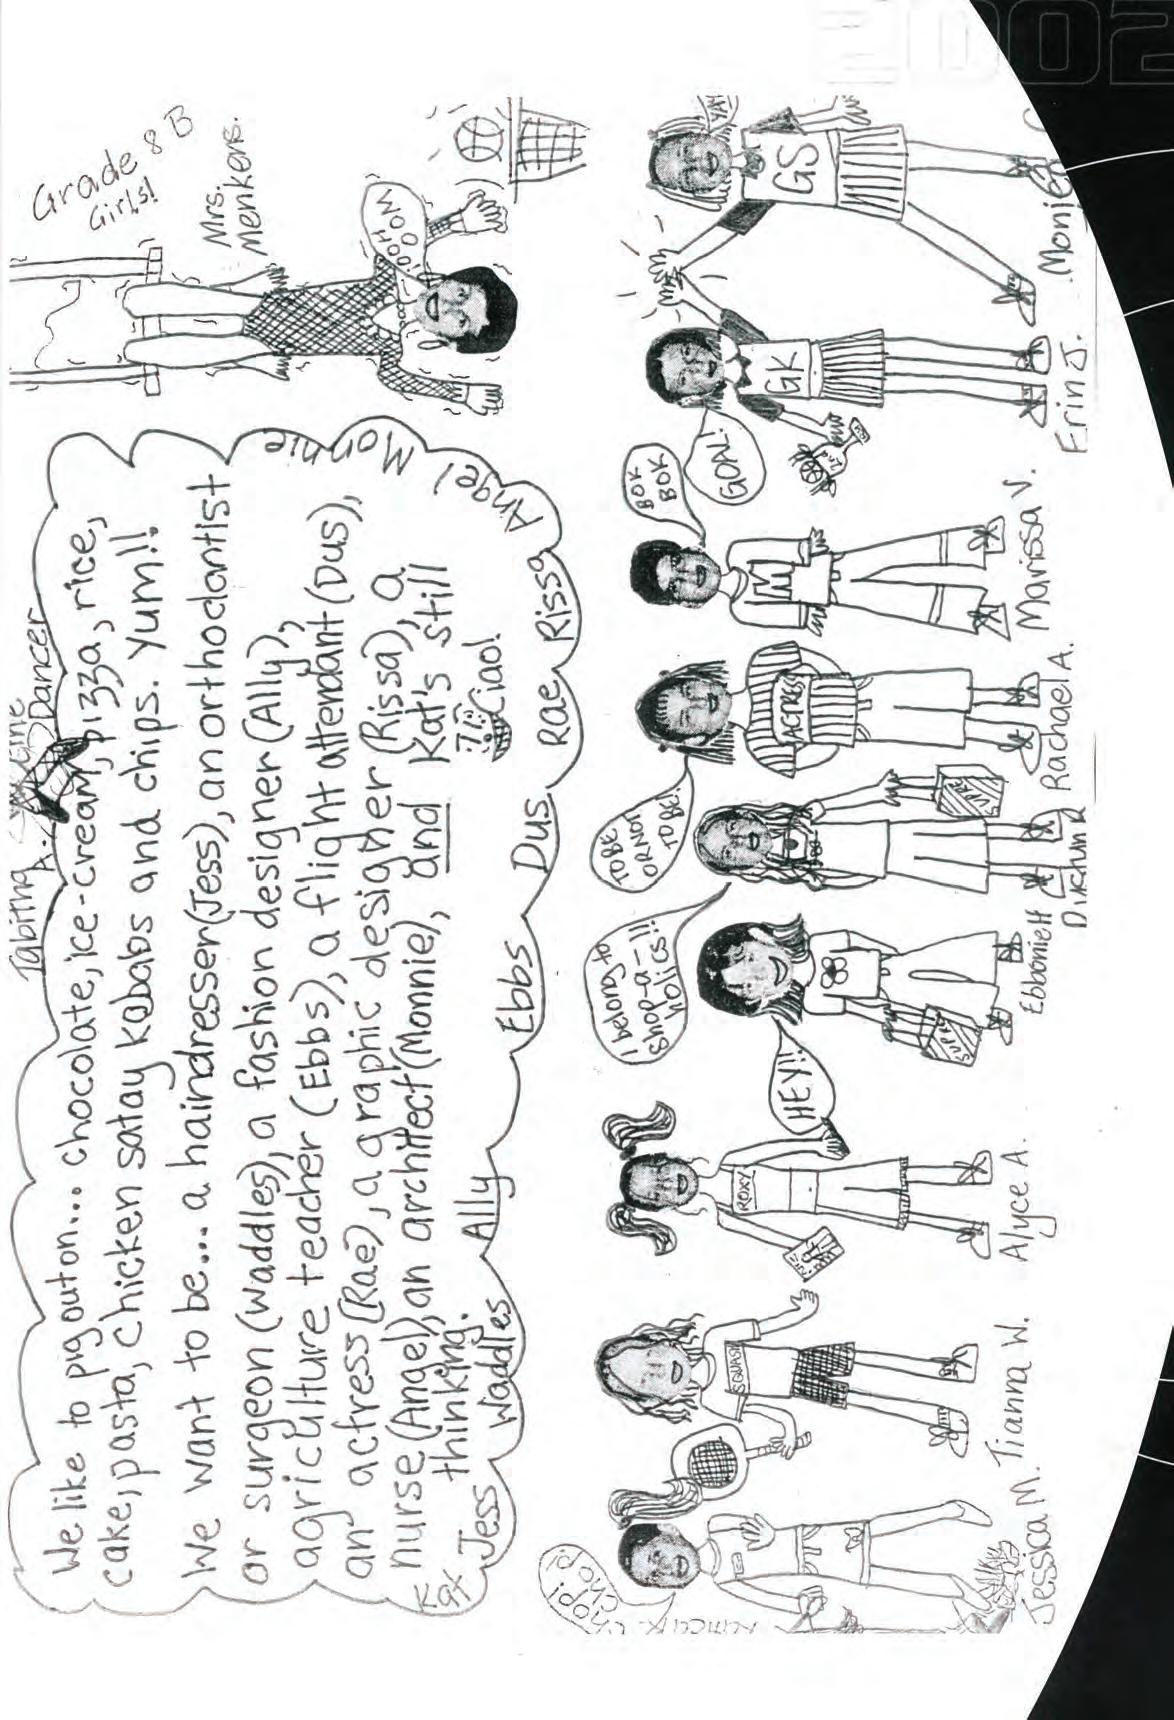 2002
Grade 8 B
Girls!
Mrs.
Menkens.
WOO
HOO!
Tabitha
A.
Dancer
We like to pig out on... chocolate, ice-cream, pizza, rice,
cake, pasta, chicken satay kobabs and chips. Yum!!
We want to be... a hairdresser (Jess), an orthodontist
or surgeon (Waddles), a fashion designer (Ally),
agriculture teacher (Ebbs), a flight attendant (Dus),
an actress (Rae), a graphic designer (Rissa), a
nurse (Angel), an architect (Monnie), and Kat's still
thinking.
Ciao!
Kat
Jess
Waddles
Ally
Ebbs
Dus
Rae
Rissa
Angel
Monnie
Chop!
Chop!
SQUASH
ROXY
HEY!!
I belong to
shop-a-
holics!!
TO BE
OR NOT
TO BE.
ACTRESS
BOK
BOK
M
GOAL!
GK
GS
YAY!
Jessica M.
Tianna W.
Alyce A.
Ebbonie H
Rachael A.
Marissa V.
Erin J.